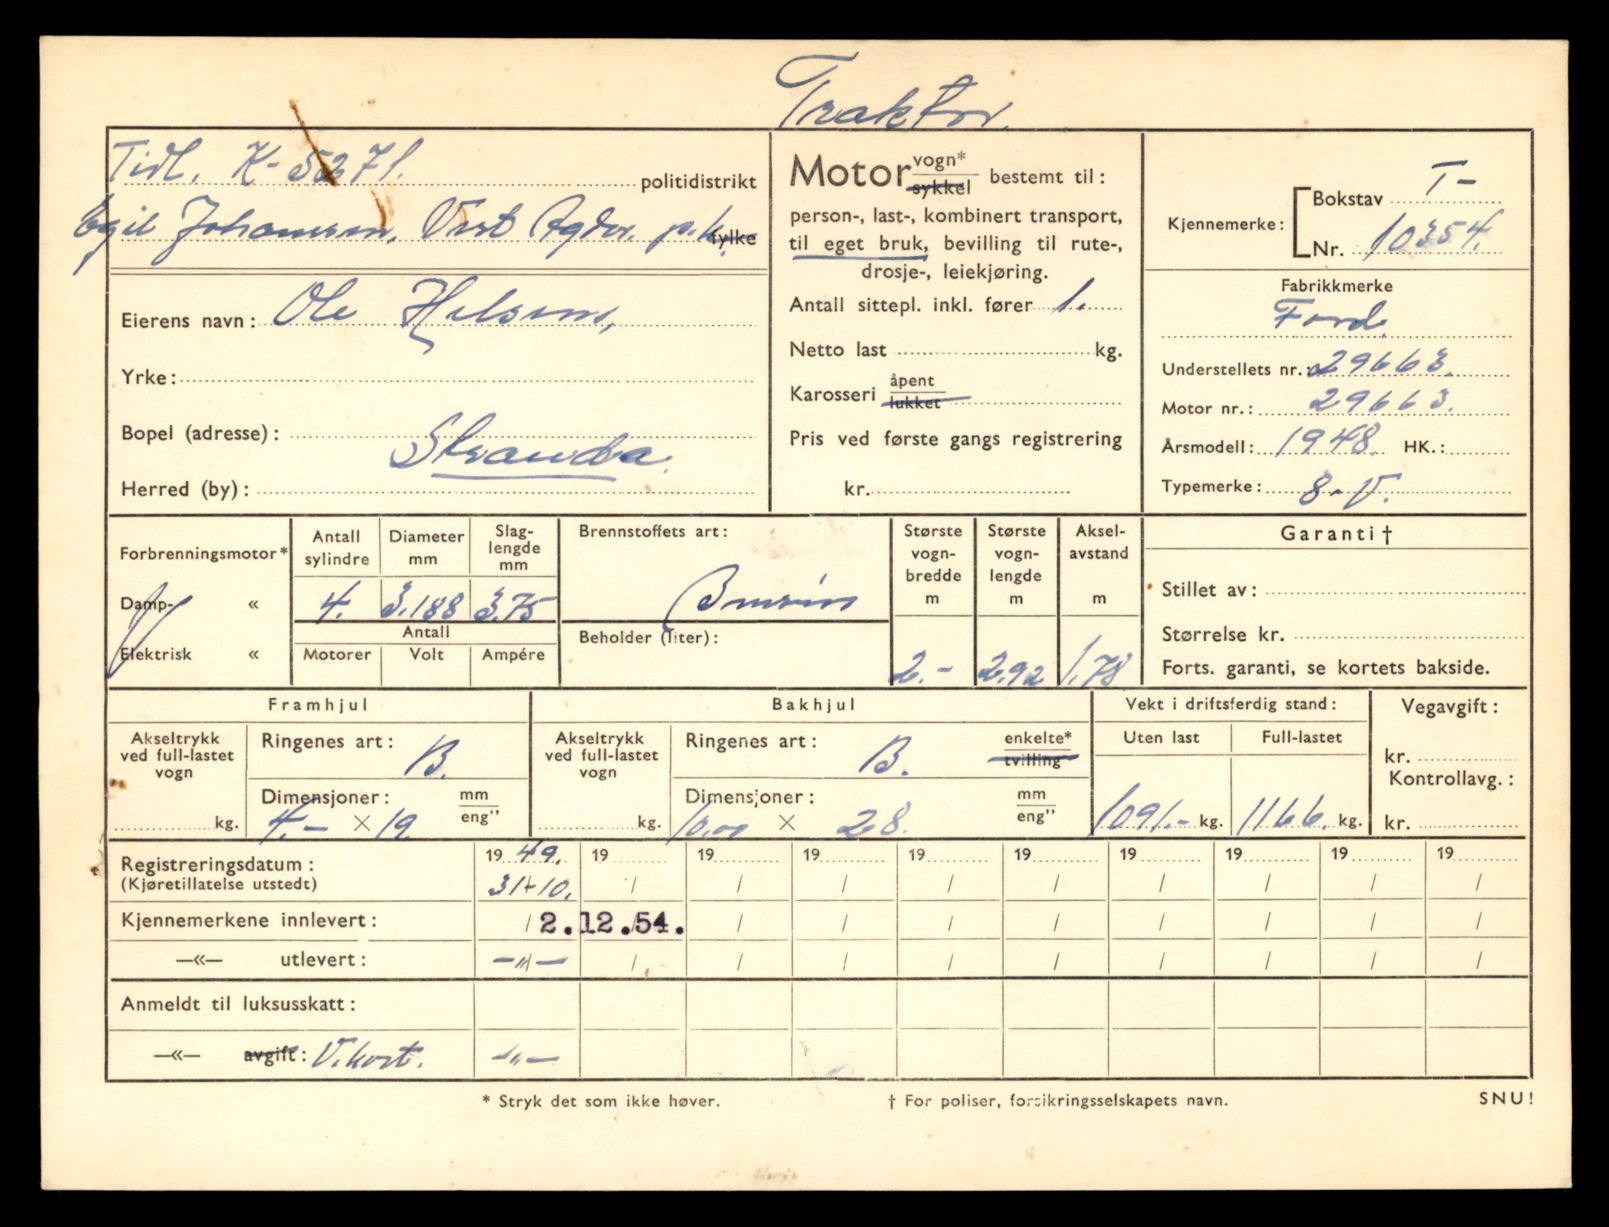 Traktor.
Tidl. K- 5271. politidistrikt
Egil Johansen, Vest Agder. p.k. fylke
Eierens navn: Ole Helsem,
Yrke:
Bopel (adresse):
Stranda
Herred (by):
Motor vogn* sykkel bestemt til:
person-, last-, kombinert transport,
til eget bruk, bevilling til rute-,
drosje-, leiekjøring.
Antall sittepl. inkl. fører 1.
Netto last kg.
Karosseri åpent lukket
Pris ved første gangs registrering
kr.
Kjennemerke:
Bokstav T-
Nr. 10354.
Fabrikkmerke
Ford.
Understellets nr.: 29663.
Motor nr.: 29663.
Årsmodell: 1948. HK.:
Typemerke: 8-V.
Forbrenningsmotor*
Damp- «
Elektrisk «
Antall sylindre
4.
Diameter mm
3.188
Slag-
lengde
mm
3.75
Antall
Motorer Volt Ampére
Brennstoffets art:
Bensin
Beholder (liter):
Største
vogn-
bredde
m
2.-
Største
vogn-
lengde
m
2.92
Aksel-
avstand
m
1.78
Garanti †
Stillet av:
Størrelse kr.
Forts. garanti, se kortets bakside.
Framhjul
Akseltrykk
ved full-lastet
vogn
kg.
Ringenes art: B.
Dimensjoner: mm eng"
4.- × 19.
Bakhjul
Akseltrykk
ved full-lastet
vogn
kg.
Ringenes art: B. enkelte* tvilling
Dimensjoner: mm eng"
10.00 × 28.
Vekt i driftsferdig stand:
Uten last Full-lastet
1091.- kg. 1166. kg.
Vegavgift:
kr.
Kontrollavg.:
kr.
Registreringsdatum: 19 49. 19 19 19 19 19 19 19 19 19
(Kjøretillatelse utstedt) 31/10. / / / / / / / / /
Kjennemerkene innlevert: / 2.12.54. / / / / / / / /
—«— utlevert: -"- / / / / / / / / /
Anmeldt til luksusskatt:
—«— avgift: V.kort. -"-
* Stryk det som ikke høver.
† For poliser, forsikringsselskapets navn.
SNU!